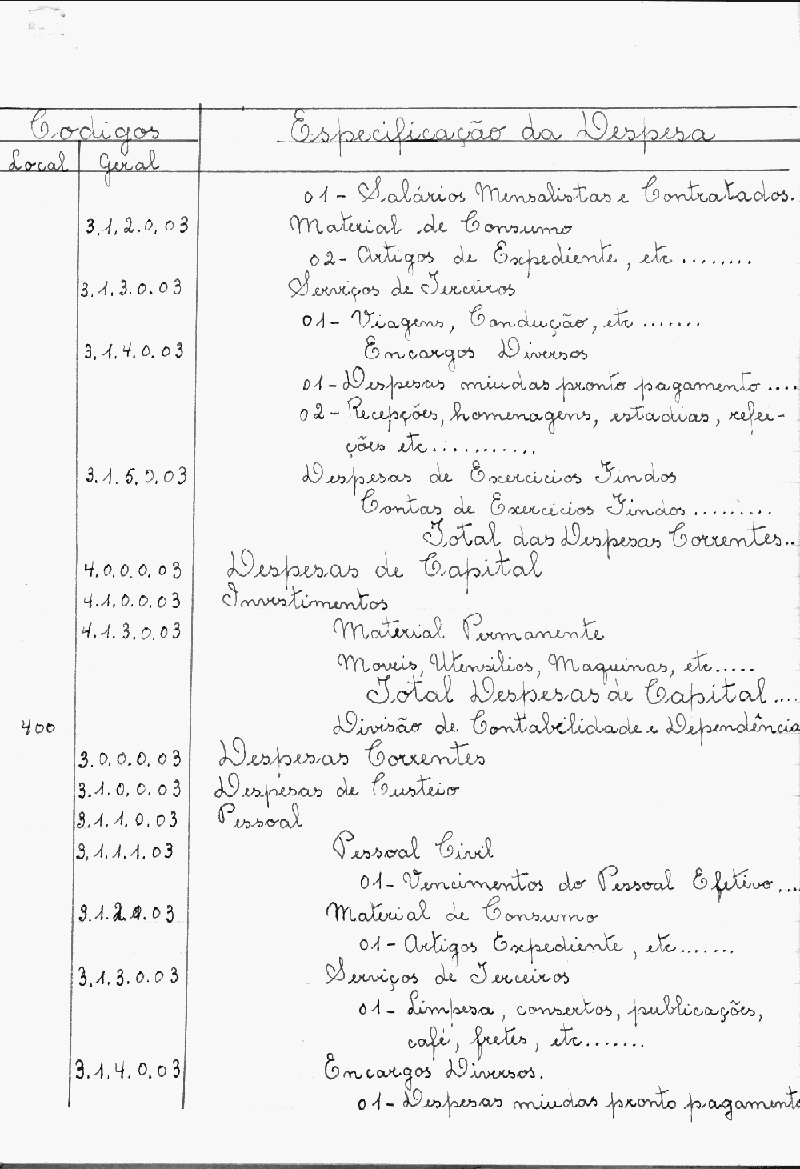 Codigos Especificação da Despesa
Local Geral
01- Salários Mensalistas e Contratados.
3.1.2.0.03 Material de Consumo
02- Artigos de Expediente, etc........
3.1.3.0.03 Serviços de Terceiros
01- Viagens, Condução, etc.......
3.1.4.0.03 Encargos Diversos
01- Despesas miudas pronto pagamento....
02- Recepções, homenagens, estadias, refei-
ções etc...........
3.1.5.0.03 Despesas de Exercicios Findos
Contas de Exercicios Findos.........
Total das Despesas Correntes..
4.0.0.0.03 Despesas de Capital
4.1.0.0.03 Investimentos
4.1.3.0.03 Material Permanente
Moveis, Utensilios, Maquinas, etc.....
Total Despesas de Capital....
400 Divisão de Contabilidade e Dependência
3.0.0.0.03 Despesas Correntes
3.1.0.0.03 Despesas de Custeio
3.1.1.0.03 Pessoal
3.1.1.1.03 Pessoal Civil
01- Vencimentos do Pessoal Efetivo...
3.1.2.0.03 Material de Consumo
01- Artigos Expediente, etc.......
3.1.3.0.03 Serviços de Terceiros
01- Limpesa, consertos, publicações,
café, fretes, etc.......
3.1.4.0.03 Encargos Diversos.
01- Despesas miudas pronto pagamento